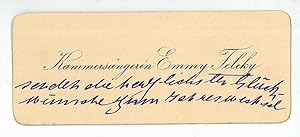 Kammersängerin Emmy Teleky
sendet die herzlichsten Glück-
wünsche zum Jahreswechsel